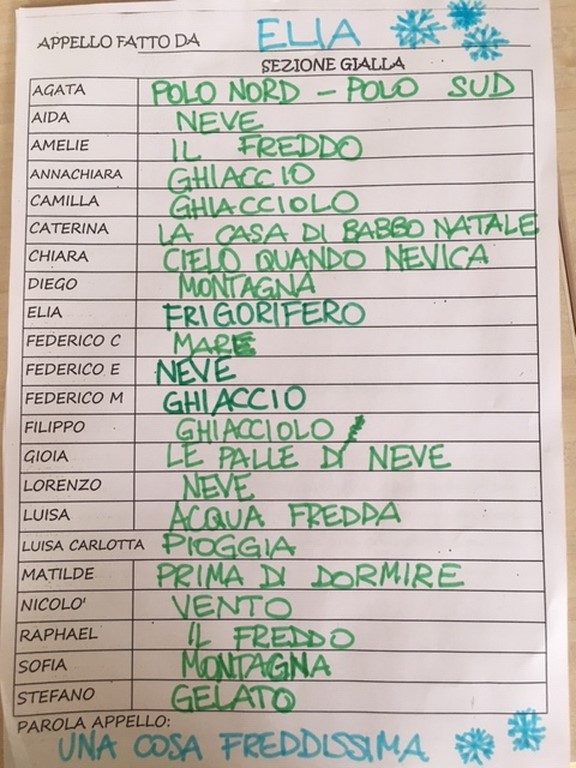 APPELLO FATTO DA ELIA
SEZIONE GIALLA
AGATA POLO NORD - POLO SUD
AIDA NEVE
AMELIE IL FREDDO
ANNACHIARA GHIACCIO
CAMILLA GHIACCIOLO
CATERINA LA CASA DI BABBO NATALE
CHIARA CIELO QUANDO NEVICA
DIEGO MONTAGNA
ELIA FRIGORIFERO
FEDERICO C MARE
FEDERICO E NEVE
FEDERICO M GHIACCIO
FILIPPO GHIACCIOLO
GIOIA LE PALLE DI NEVE
LORENZO NEVE
LUISA ACQUA FREDDA
LUISA CARLOTTA PIOGGIA
MATILDE PRIMA DI DORMIRE
NICOLO' VENTO
RAPHAEL IL FREDDO
SOFIA MONTAGNA
STEFANO GELATO
PAROLA APPELLO:
UNA COSA FREDDISSIMA